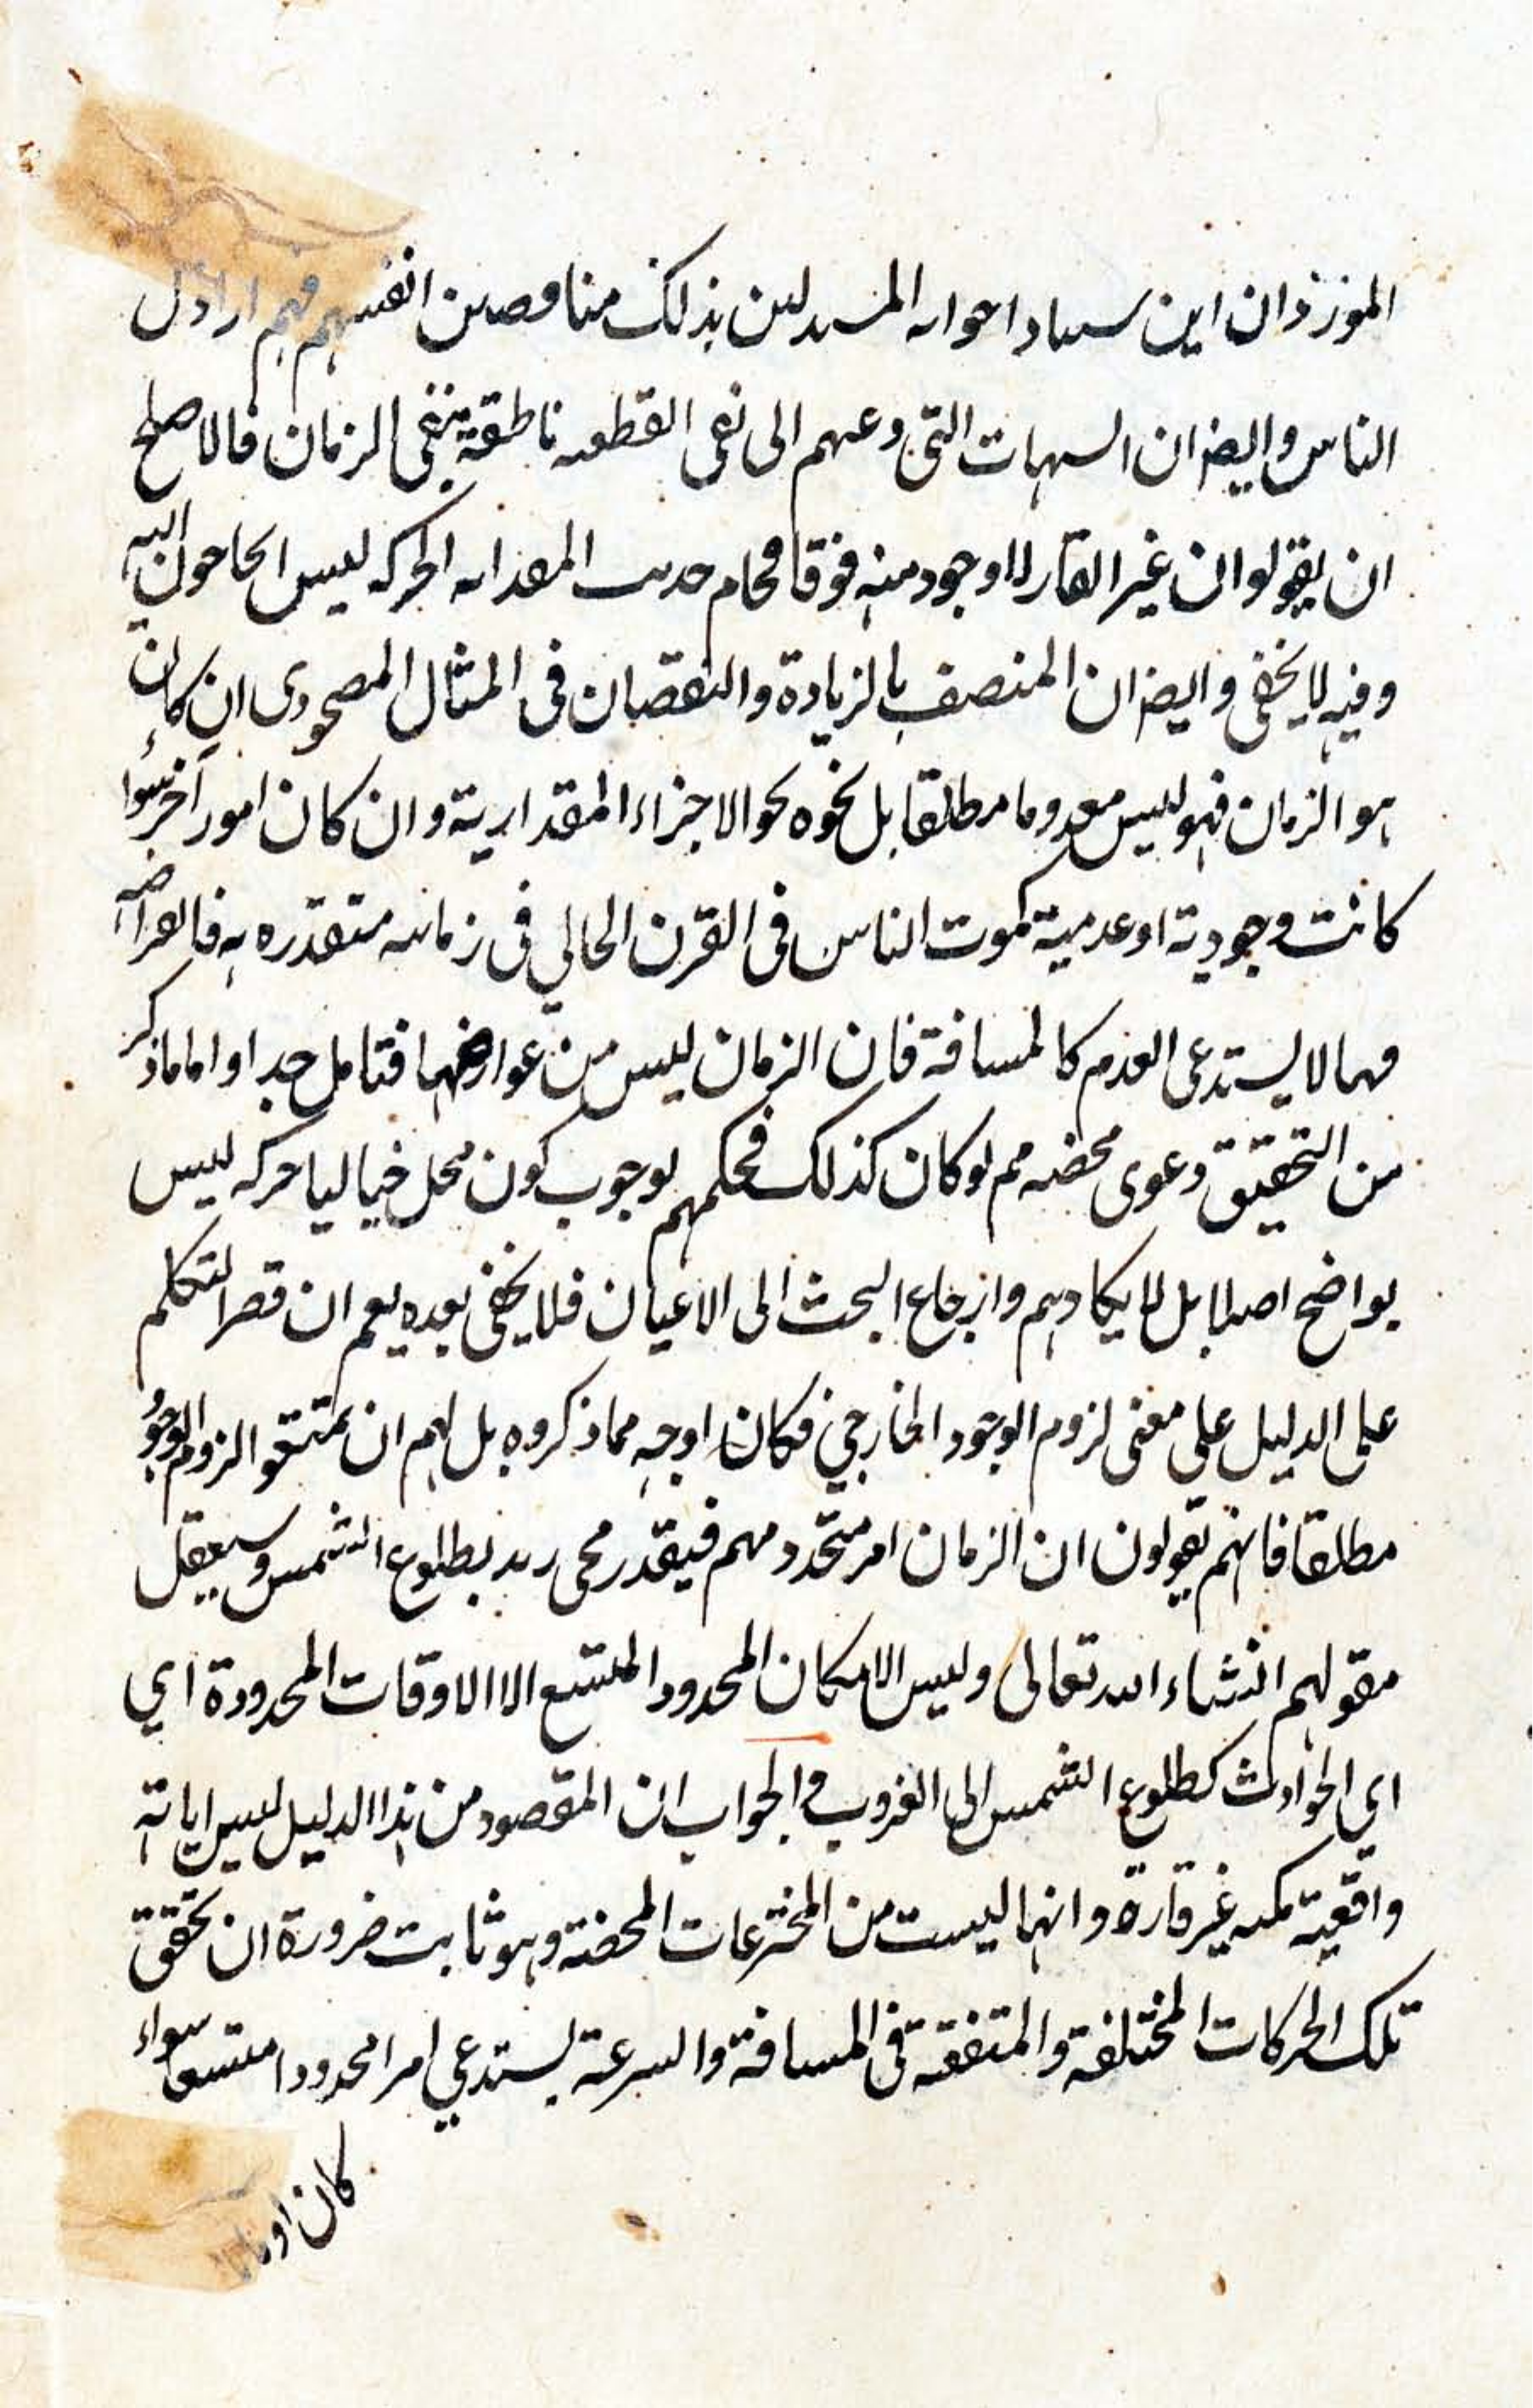 ان ابن سينا واخوانه المستدلين بذلك مناقضين انفسهم فهم اراذل
الناس وايضا ان الشبهات التي دعتهم الى نفي القطعية ناطقة بنفي الزمان فالاصلح
ان يقولوا ان غير القار لا وجود منه فوقا حديث الحركة ليس
وفيه لا يخفى وايضا ان المتصف بالزيادة والنقصان في المثال ان كان
هو الزمان فهو ليس معدوما مطلقا بل نحوه نحو الاجزاء المقدارية وان كان امور آخر سواء
كانت وجودية او عدمية كموت الناس في القرن الخالي في زمانه متقدره به
فهما لا يستدعي العدم كالمسافة فان الزمان ليس من عوارضها فتامل جدا واما ما ذكر
من التحقيق دعوى محضه ثم لو كان كذلك فحكمهم بوجوب كون محل خياليا حركه ليس
بواضح اصلا بل لا يكاد يتم وارجاع البحث الى الاعيان فلا يخفى بعده نعم ان قصر المتكلم
على الدليل على معنى لزوم الوجود الخارجي فكان اوجه مما ذكروه بل لهم ان يمنعوا لزوم الوجود
مطلقا فانهم يقولون ان الزمان امر متجدد فيقدر مجى زيد بطلوع الشمس وسيعقل
مقولهم انشاء الله تعالى وليس الامكان المحدود المتسع الا الاوقات المحدودة اي
اي الحوادث كطلوع الشمس الى الغروب والجواب ان المقصود من هذا الدليل ليس الا
واقعية كميه غير قارة وانها ليست من المخترعات المحضة وهو ثابت ضرورة ان تحقق
تلك الحركات المختلفة والمتفقه في المسافة والسرعة يستدعي امرا محدودا متسعا سواء
كان